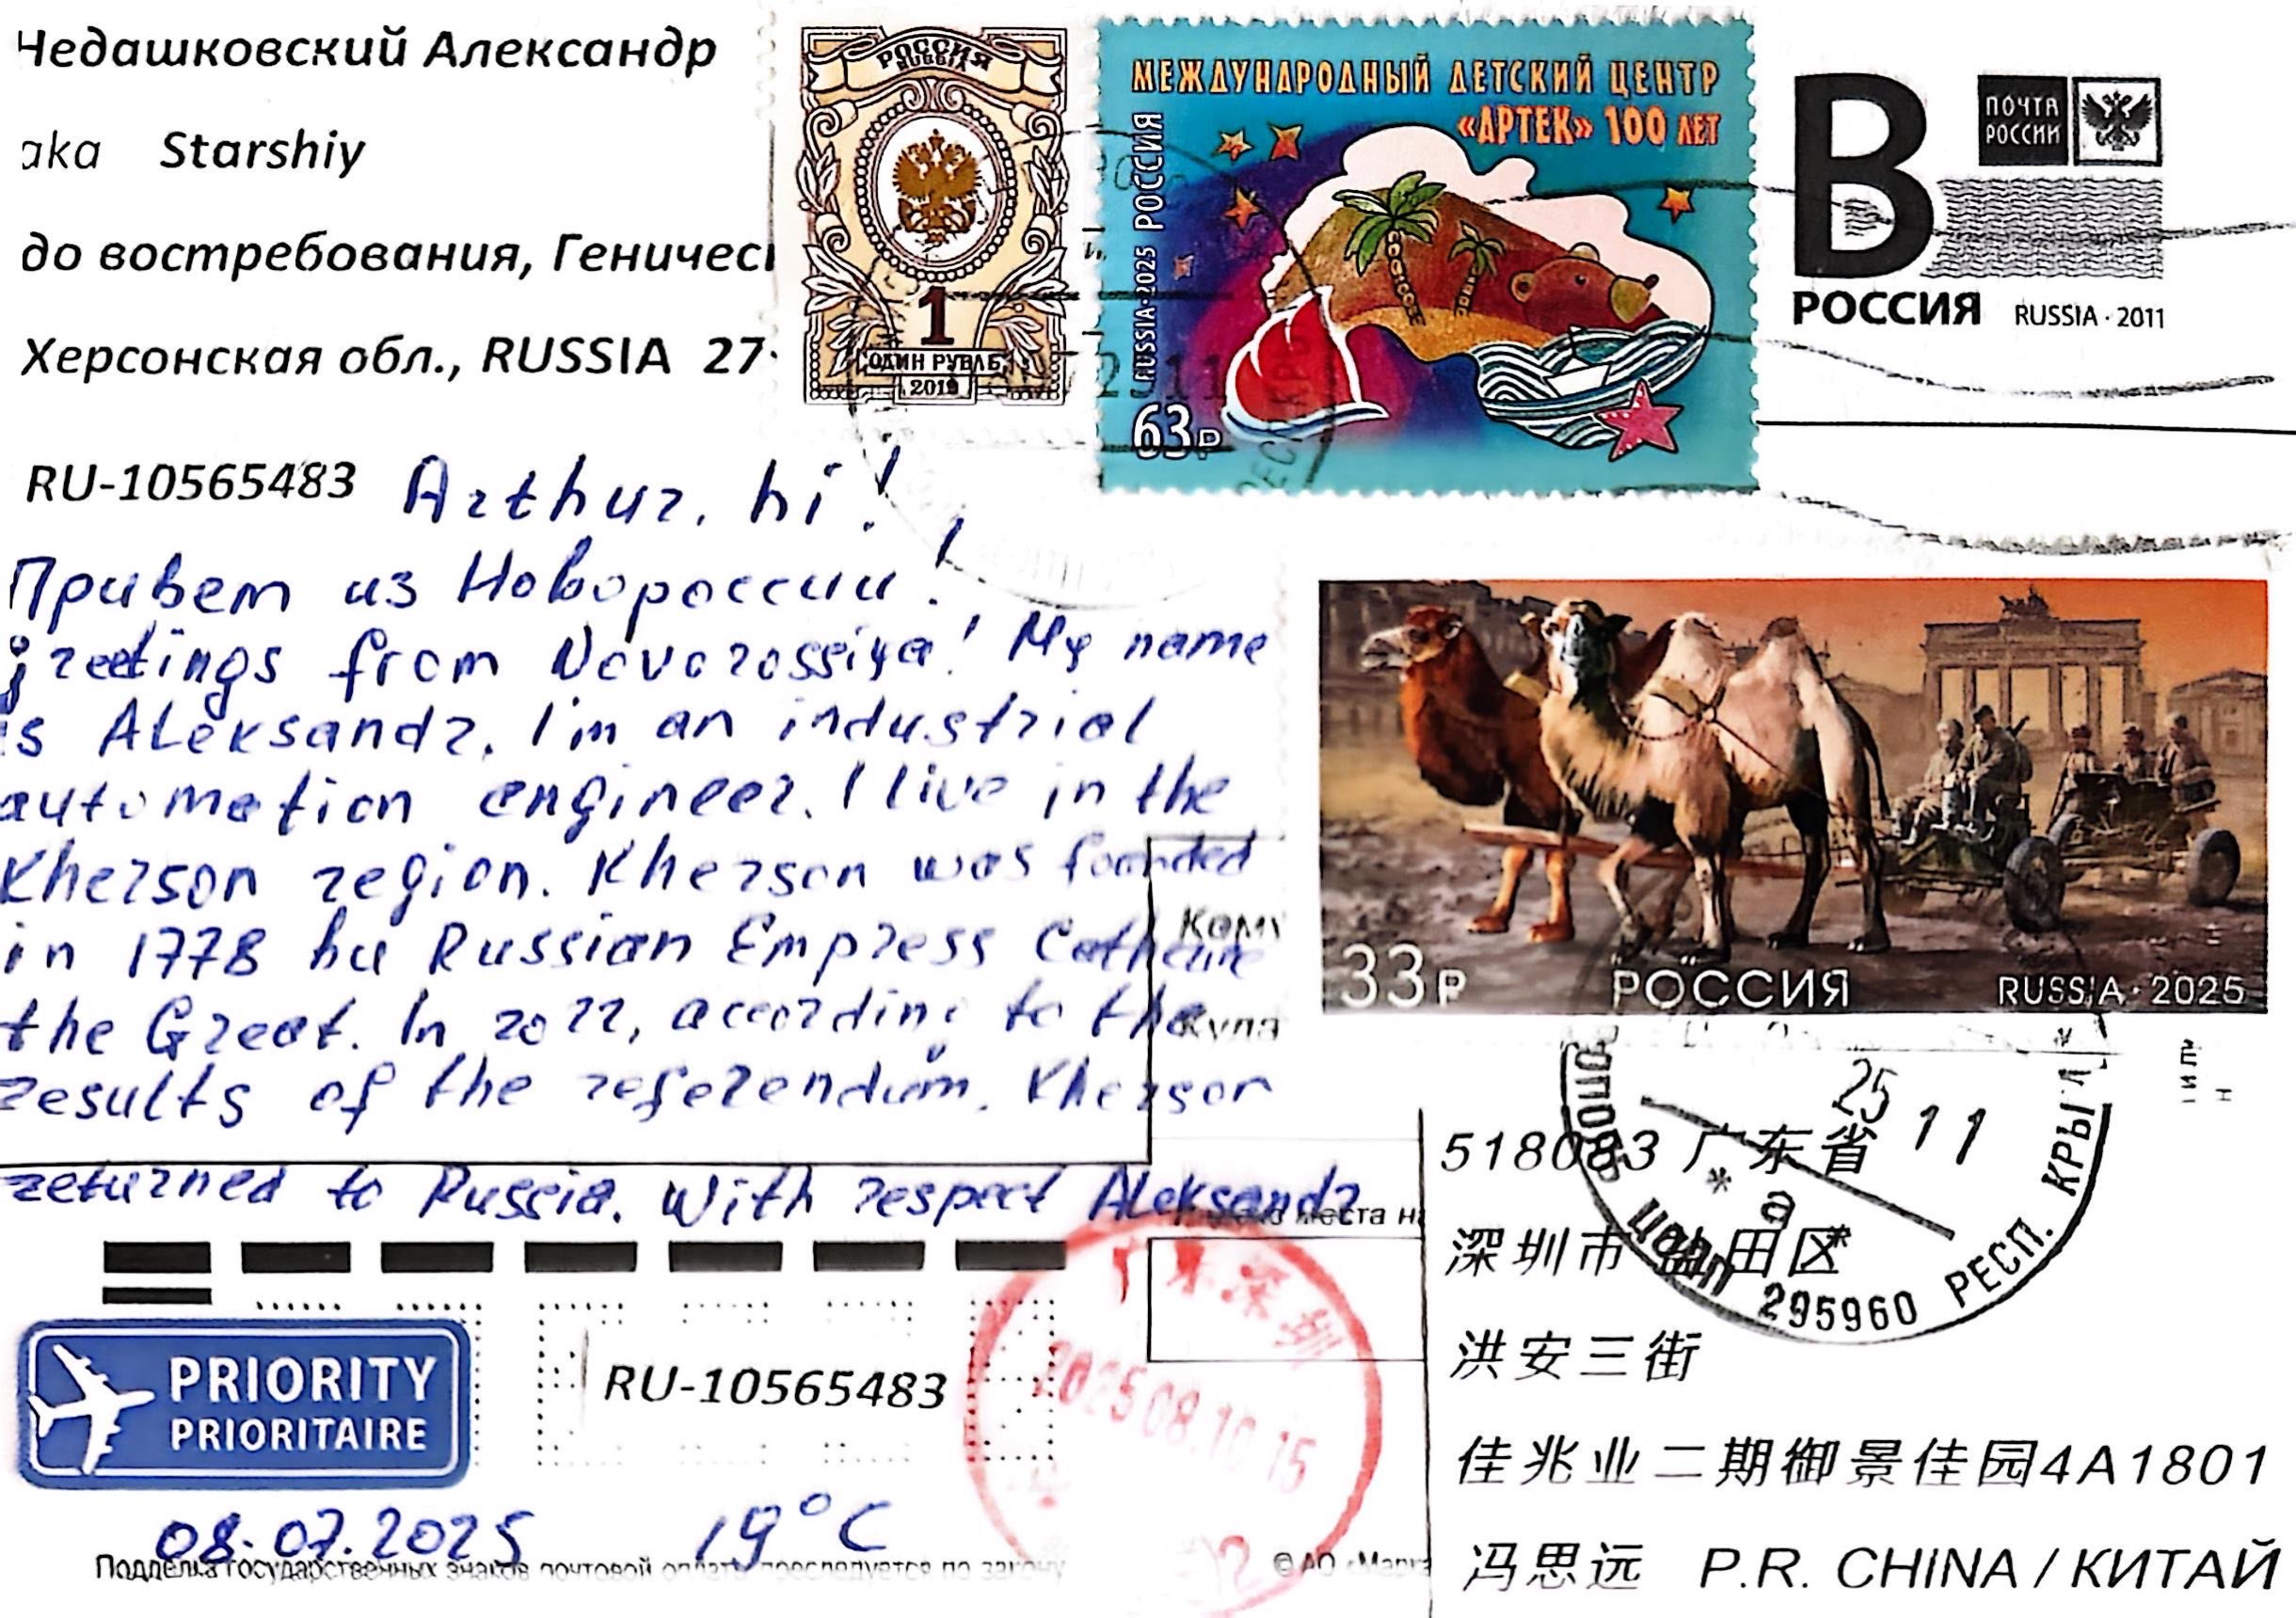 Недашковский Александр
aka Starshiy
до востребования, Геническ
Херсонская обл., RUSSIA 27
РОССИЯ
RUSSIA
1
ОДИН РУБЛЬ
2019
МЕЖДУНАРОДНЫЙ ДЕТСКИЙ ЦЕНТР
«АРТЕК» 100 ЛЕТ
RUSSIA·2025 РОССИЯ
63₽
B
ПОЧТА
РОССИИ
РОССИЯ RUSSIA · 2011
RU-10565483 Arthur, hi!
Привет из Новороссии!
greetings from Novorossiya! My name
is Aleksandr. I'm an industrial
automation engineer. I live in the
Kherson region. Kherson was founded
in 1778 by Russian Empress Catherine
the Great. In 2022, according to the
results of the referendum, Kherson
returned to Russia. With respect Aleksandr
33₽ РОССИЯ RUSSIA · 2025
Кому
25 11
* а *
295960 РЕСП. КРЫ
места на
518083 广东省
深圳市 盐田区
洪安三街
佳兆业二期御景佳园4A1801
冯思远 P.R. CHINA / КИТАЙ
PRIORITY
PRIORITAIRE
RU-10565483
广东深圳
2025.08.10.15
08.07.2025 19°C
Подделка государственных знаков почтовой оплаты преследуется по закону
© АО «Марка